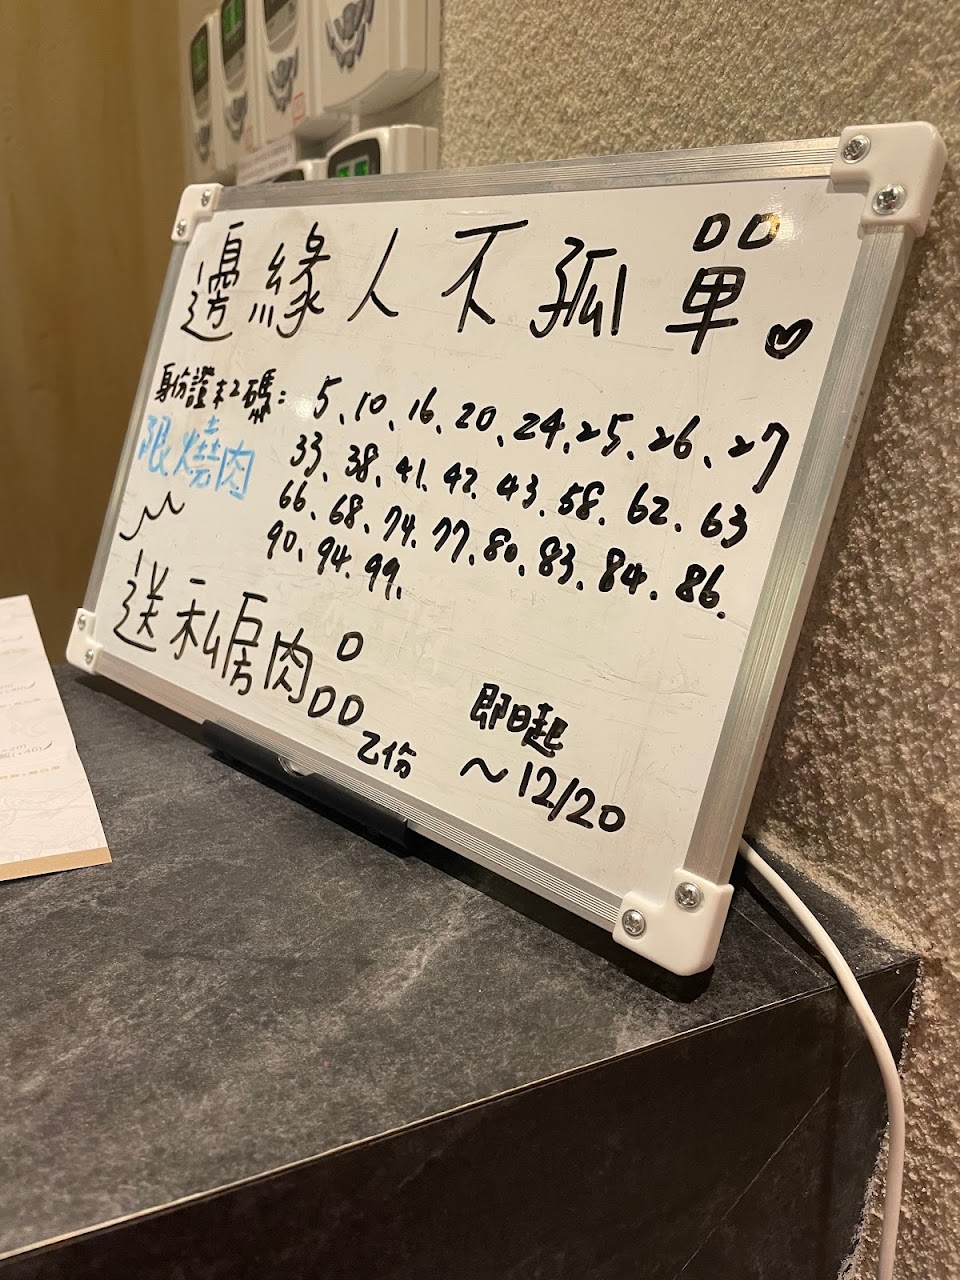 邊緣人不孤單。
身份證末2碼: 5、10、16、20、24、25、26、27
限燒肉
33、38、41、42、43、58、62、63
66、68、74、77、80、83、84、86、
90、94、99、
送私房肉品乙份
即日起
~12/20